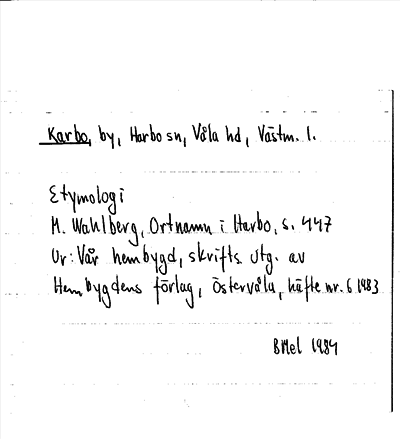 Karbo, by, Harbo sn, Våla hd, Västm. l.
Etymologi
M. Wahlberg, Ortnamn i Harbo, s. 447
Ur: Vår hembygd, skrifts. utg. av
Hembygdens förlag, Östervåla, häfte nr. 6 1983
BMel 1984